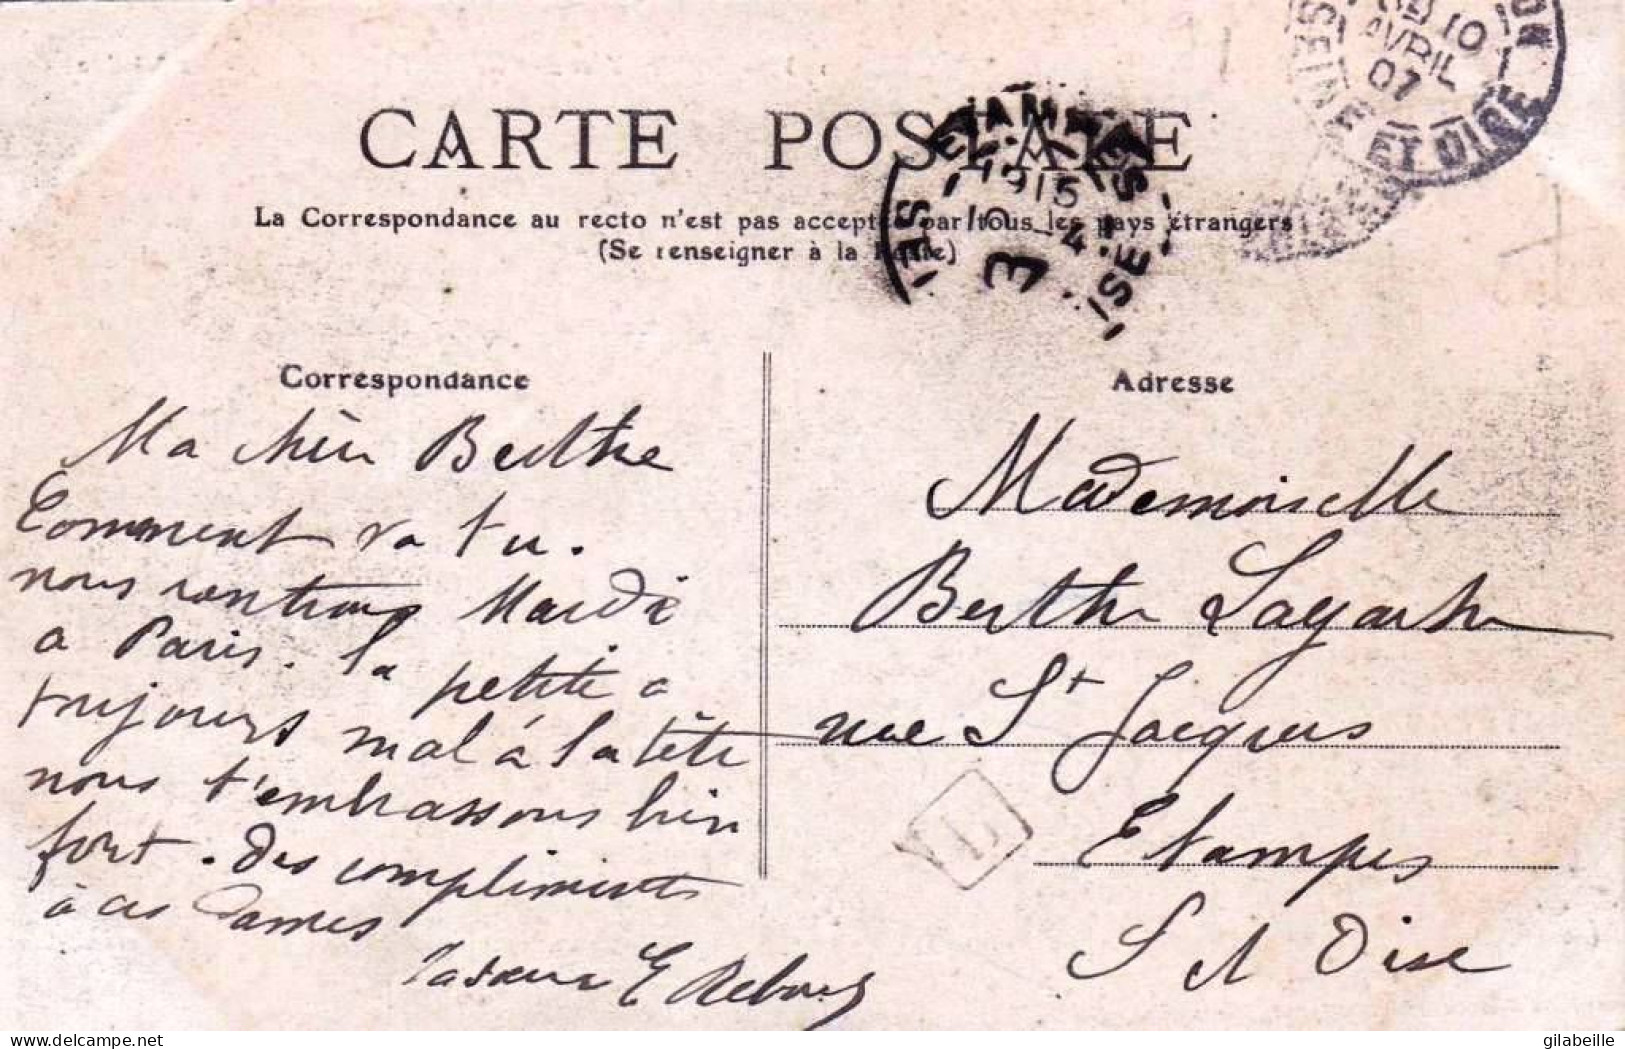 CARTE POSTALE
La Correspondance au recto n'est pas acceptée par tous les pays étrangers
(Se renseigner à la Poste)
Correspondance
Ma chère Berthe
Comment va tu.
nous rentrons Mardi
a Paris. la petite a
toujours mal à la tête
nous t'embrassons bien
fort. des compliments
à ces Dames
Ta sœur E Rebours
Adresse
Mademoiselle
Berthe
rue St Jacques
Etampes
S et Oise
ETAMPES
3
10
AVRIL
07
SEINE ET OISE
gilabeille